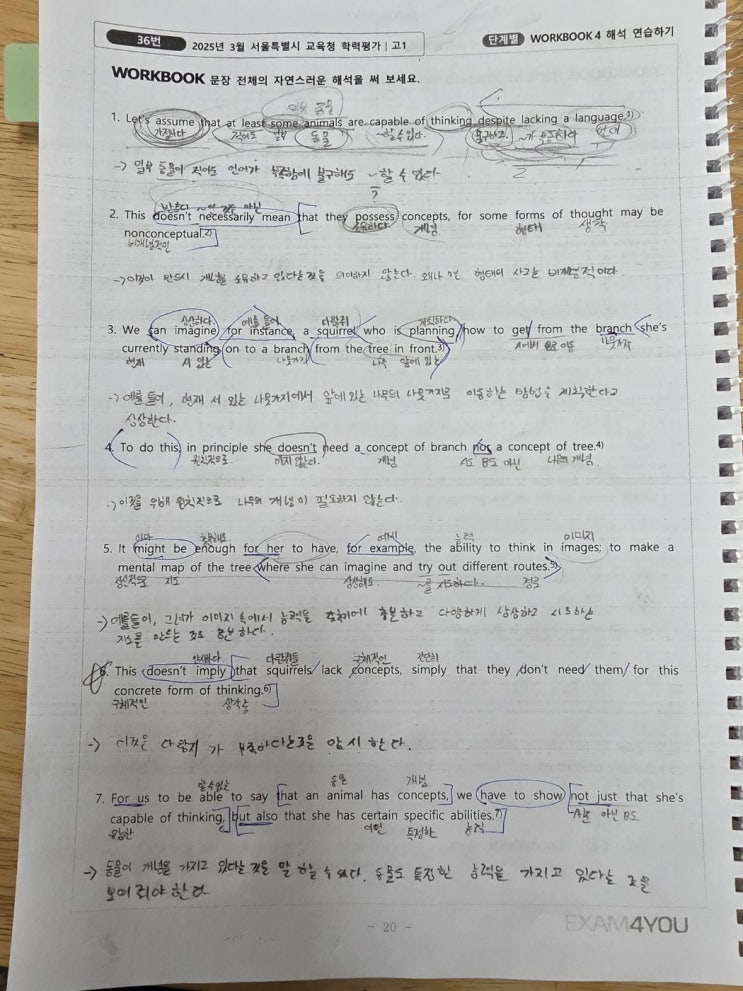 36번
2025년 3월 서울특별시 교육청 학력평가 | 고1
단계별 WORKBOOK 4 해석 연습하기
WORKBOOK 문장 전체의 자연스러운 해석을 써 보세요.
1. Let's assume that at least some animals are capable of thinking despite lacking a language.1)
가정하다 적어도 일부 동물 ~할 수 있다. 언어
→ 일부 동물이 적어도 언어가 부족함에 불구해도 ~할 수 있다.
?
2. This doesn't necessarily mean that they possess concepts, for some forms of thought may be
소유하다 개념 형태 생각
nonconceptual.2)
비개념적인
→ 이것이 반드시 개념을 소유하고 있다는 것을 의미하지 않는다. 왜냐 형태의 사고는 비개념적이다.
상상하다. 예를 들어 다람쥐 계획하다
3. We can imagine, for instance, a squirrel who is planning how to get from the branch she's
나뭇가지
currently standing on to a branch from the tree in front.3)
현재 서 있는 나뭇가지 나무 앞에 있는
→ 예를 들어, 현재 서 있는 나뭇가지에서 앞에 있는 나무의 나뭇가지로 이동하는 방법을 계획한다고
상상한다.
4. To do this, in principle she doesn't need a concept of branch nor a concept of tree.4)
원칙적으로 개념 A도 B도 아닌 나무의 개념
→ 이것을 위해 원칙적으로 나무의 개념이 필요하지 않는다.
예시 능력 이미지
5. It might be enough for her to have, for example, the ability to think in images; to make a
mental map of the tree where she can imagine and try out different routes.5)
지도 상상해요 시도하다. 경로
→ 예를들어, 그녀가 이미지 속에서 능력을 충분하고 다양하게 상상하고 시도하는
지도를 만드는 것도 충분하다.
다람쥐들 구체적인 간단히
6. This doesn't imply that squirrels lack concepts, simply that they don't need them for this
concrete form of thinking.6)
구체적인 생각
→ 이것은 다람쥐가 부족하다는것을 암시한다.
말할수있는 동물 개념
7. For us to be able to say that an animal has concepts, we have to show not just that she's
A뿐 아닌 B도
capable of thinking, but also that she has certain specific abilities.7)
유능한 어떤 특정한 능력
→ 동물이 개념을 가지고 있다는 것을 말 할 수 있다. 동물도 특정한 능력을 가지고 있다는 것을
보여줘야 한다.
- 20 -
EXAM4YOU